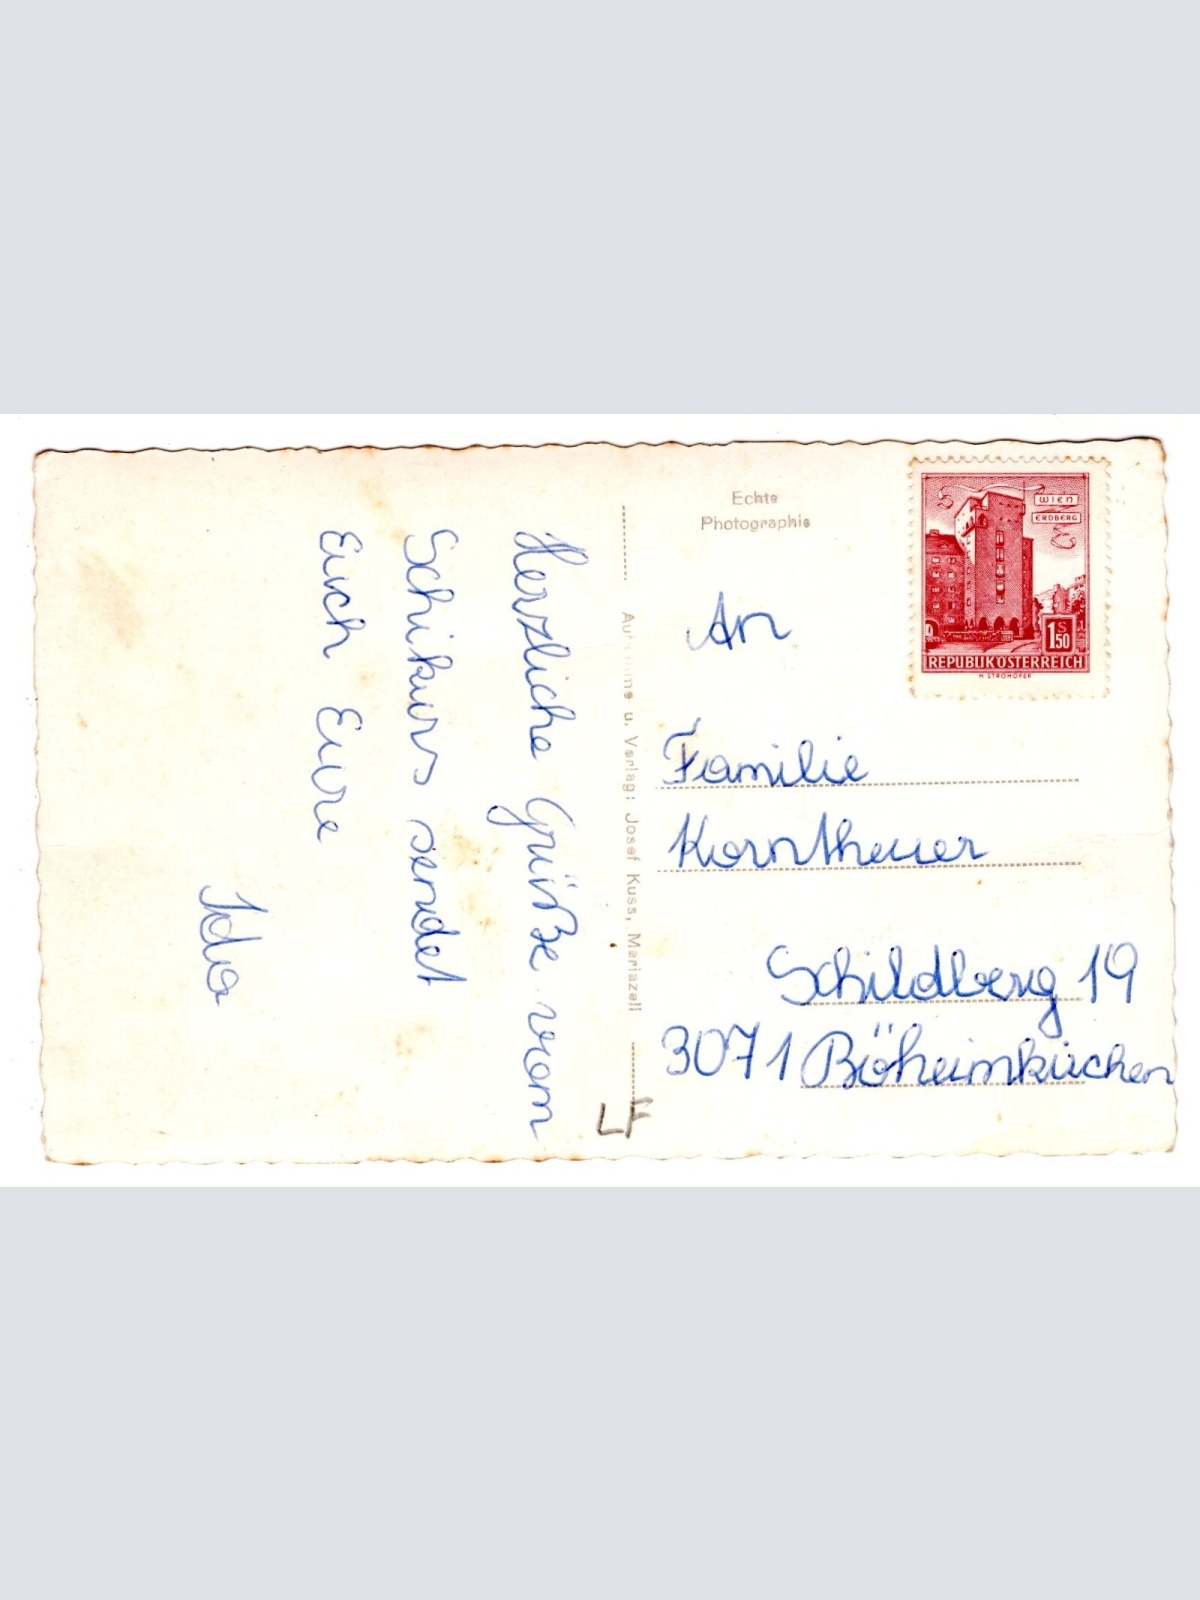 Herzliche Grüße vom
Schikurs sendet
Euch Eure
Ida
Echte
Photographie
Aufnahme u. Verlag: Josef Kuss, Mariazell
WIEN
ERDBERG
1 S 50
REPUBLIK ÖSTERREICH
H. STROHOFER
An
Familie
Korntheuer
Schildberg 19
3071 Böheimkirchen
LF